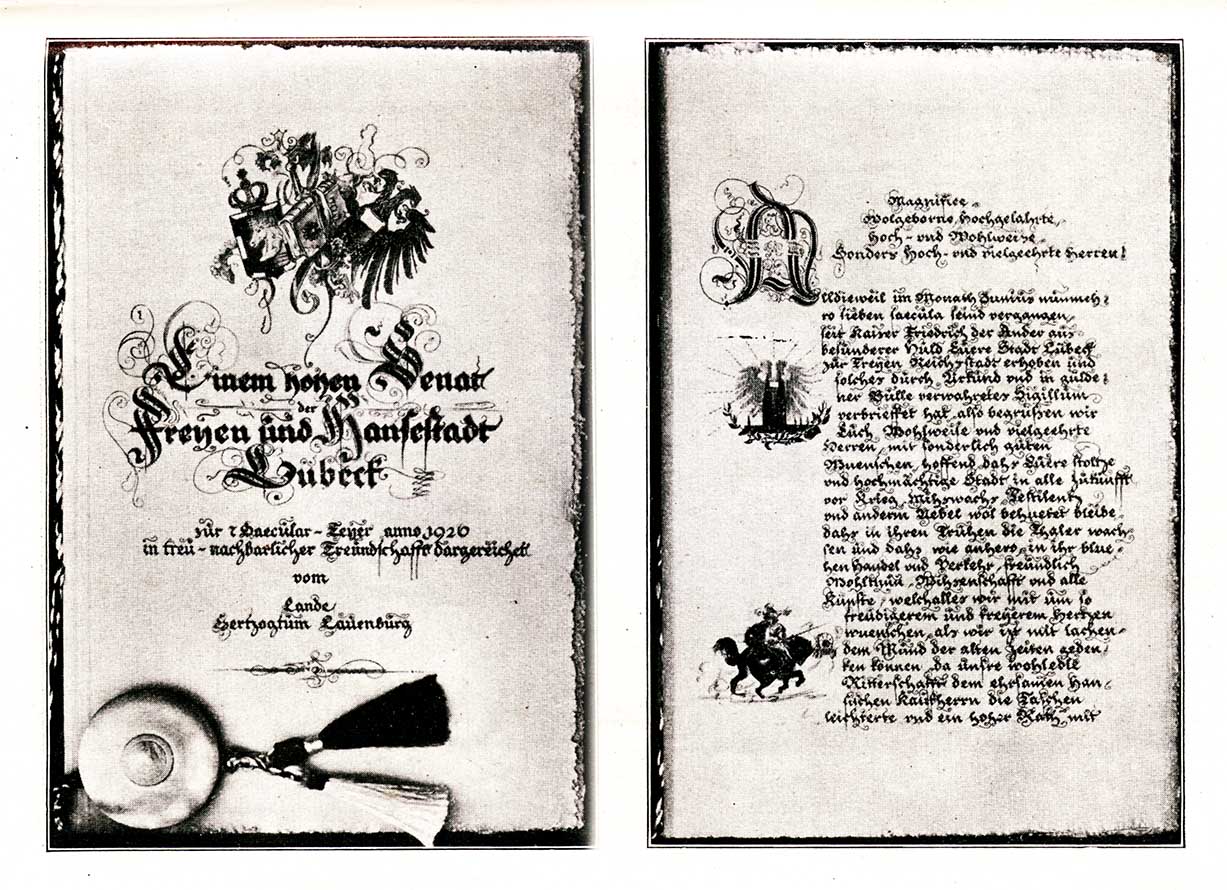 Einem hohen Senat
der
Freyen und Hansestadt
Lübeck
zür 7 Saecular-Feyer anno 1926
in treü-nachbarlicher Freündschafft dargereichet
vom
Lande
Hertzogtum Laüenbürg
Magnifice
Wolgeborne, Hochgelahrte,
Hoch- vnd Wohlweise,
Sonders Hoch- vnd vielgeehrte Herren!
Alldieweil im Monath Junius nünmeh:
ro sieben saecula seind vergangen,
seit Kaiser Friedrich der Ander aus
besünderer Hüld Eüere Stadt Lübeck
zür Freyen Reichsstadt erhoben und
solches dürch Urkünd vnd in gülde:
ner Bülle verwahretes Sigillüm
verbrieffet hat, also begrüßen wir
Eüch, Wohlweise vnd vielgeehrte
Herren, mit sonderlich güten
Wuenschen, hoffend dahs Eüere stoltze
vnd hochmächtige Stadt in alle Zükünfft
vor Krieg, Mihswachs, Pestilentz
vnd anderm Uebel wol behuetet bleibe
dahs in ihren Trühen die Thaler wach-
sen und dahs wie anhero, in ihr blue-
hen Handel vnd Verkehr, freündlich
Wohlthün, Wihsenschafft vnd alle
Künste, welchalles wir mit üm so
freüdigerem ünd freyerem Hertzen
wuenschen, als wir itz mit lachen-
dem Münd der alten Zeiten geden-
ken können, da ünsre wohledle
Ritterschafft dem ehrsamen Han-
sischen Kaufherrn die Taschen
leichterte vnd ein hoher Rath mit